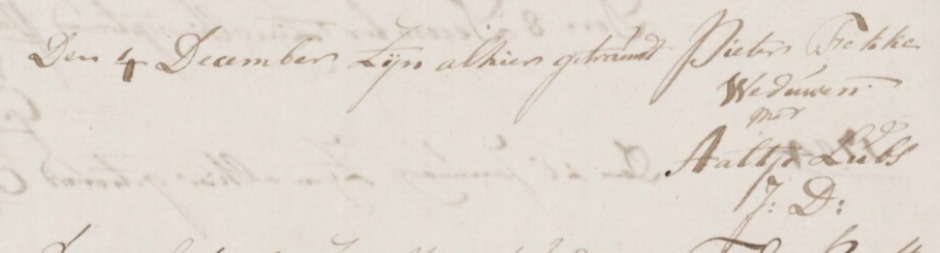 Den 4 December Zijn alhier getrouwt Pieter Fokke
Weduwen.
met
Aaltje Lubs
J: D: